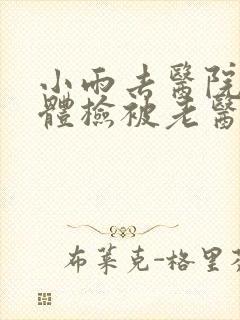 小雨去醫院
體檢被老醫
布萊克-格里芬